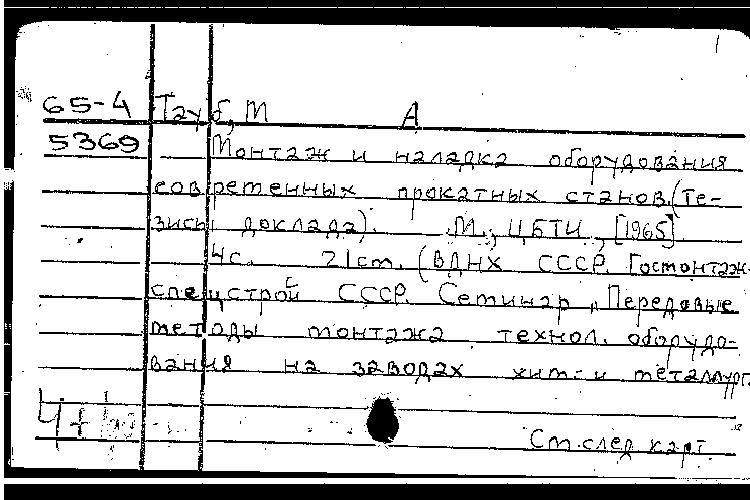 65-4 Тауб, М А
5369 Монтаж и наладка оборудования
современных прокатных станов. (Те-
зисы доклада). М., ЦБТИ, [1965]
4с. 21см. (ВДНХ СССР. Госмонтаж-
спецстрой СССР. Семинар "Передовые
методы монтажа технол. оборудо-
вания на заводах хим. и металлург.
См. след карт.